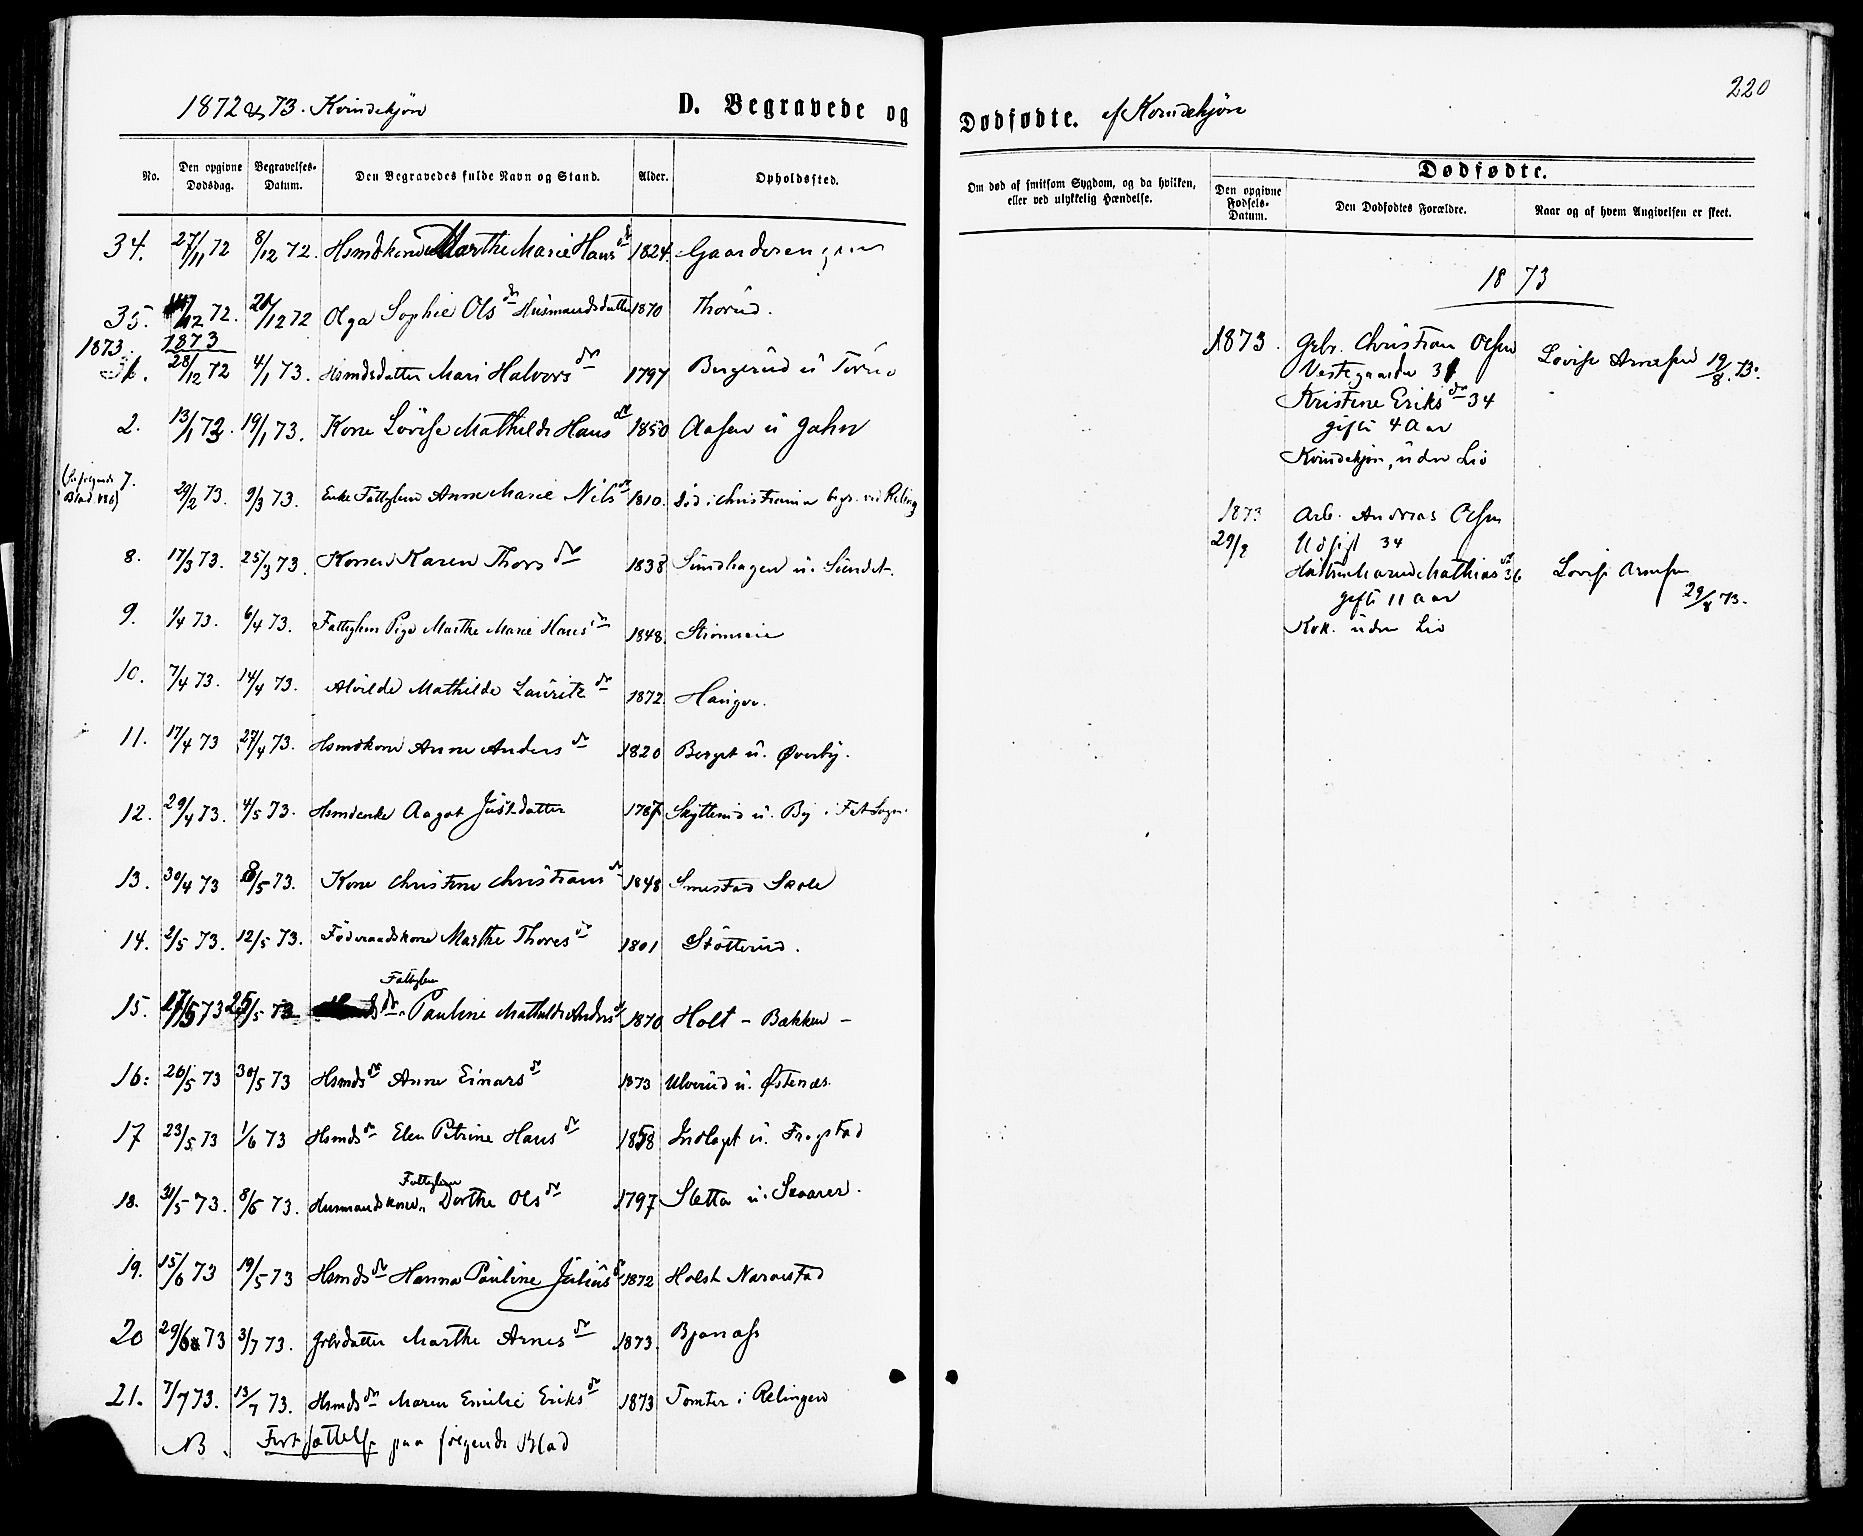 220
1872 & 73. Kvindekjøn D. Begravede og Dødfødte. af Kvindekjøn
No. Den opgivne Dødsdag. Begravelses-Datum. Den Begravedes fulde Navn og Stand. Alder. Opholdssted.
Om død af smitsom Sygdom, og da hvilken, eller ved ulykkelig Hændelse.
Dødfødte.
Den opgivne Fødsels-Datum. Den Dødfødtes Forældre. Naar og af hvem Angivelsen er skeet.
34. 27/11 72 8/12 72. Hsmdkone Marthe Marie Hans dr 1824. Gaarderengen
35. /12 72. 20/12 72 Olga Sophie Ols dr Husmandsdatter 1870 Thorud.
1873. 1873
1. 28/12 72 4/1 73. Hsmdsdatter Mari Halvors dr 1797 Bergerud u
2. 13/1 73. 19/1 73. Kone Lovise Mathilde Hans dr 1850 Aasen u Jahr
7. 29/2 73. 9/3 73. Enke Fattiglem Anne Marie Nils dr 1810. død i Christiania begr. ved Reling
8. 17/3 73. 25/3 73. Konen Karen Thors dr 1838 Sundhagen u. Sundet.
9. 1/4 73. 6/4 73. Fattiglem Pige Marthe Marie Hans dr 1848. Strømmen
10. 7/4 73. 14/4 73. Alvilde Mathilde Lauritz dr 1872. Haugen.
11. 17/4 73 27/4 73. Hsmdkone Anne Anders dr 1820 Berget u. Øverby.
12. 29/4 73. 4/5 73. Hsmdenke Aagot Justdatter 1787 Skytterud u. By i Fet Sogn
13. 30/4 73 8/5 73. Kone Christine Christians dr 1848 Smestad Skole
14. 2/5 73. 12/5 73. Føderaadskone Marthe Thores dr 1801 Støtterud.
Fattiglem
15. 17/5 73 25/5 73 dr. Pauline Mathilde Anders dr 1870 Holt - Bækken -
16. 20/5 73 30/5 73 Hsmds dr Anne Einars dr 1873 Ulverud u. Østenæs.
17 23/5 73 1/6 73 Hsmds dr Elen Petrine Hans dr 1858 Indlaget u. Frogstad
Fattiglem
18. 31/5 73. 8/6 73. Husmandskone Dorthe Ols dr 1797 Sletta u. Svarer.
19. 15/6 73 19/5 73 Hsmds dr Hanna Pauline Julius dr 1872 Holst Narvestad
20 29/6 73 3/7 73. Grbrdatter Marthe Arnes dr 1873. Bjønnass
21. 7/7 73. 13/7 73. Hsmds dr Maren Emilie Eriks dr 1873 Tomter i Relingen
NB. Fortsættelse paa følgende Blad
1873
1873. Grbr. Christian Olsen
Vestegaarden 31
Kristine Eriks dr 34
gifte 4 Aar
Kvindekjøn, uden Liv
Lovise Arnesen 19/8. 73.
1873 Arb. Andreas Olsen
29/8 Udsigt 34
Mathias dr 36
gifte 11 Aar
Kvk. uden Liv
Lovise Arnesen
29/8 73.